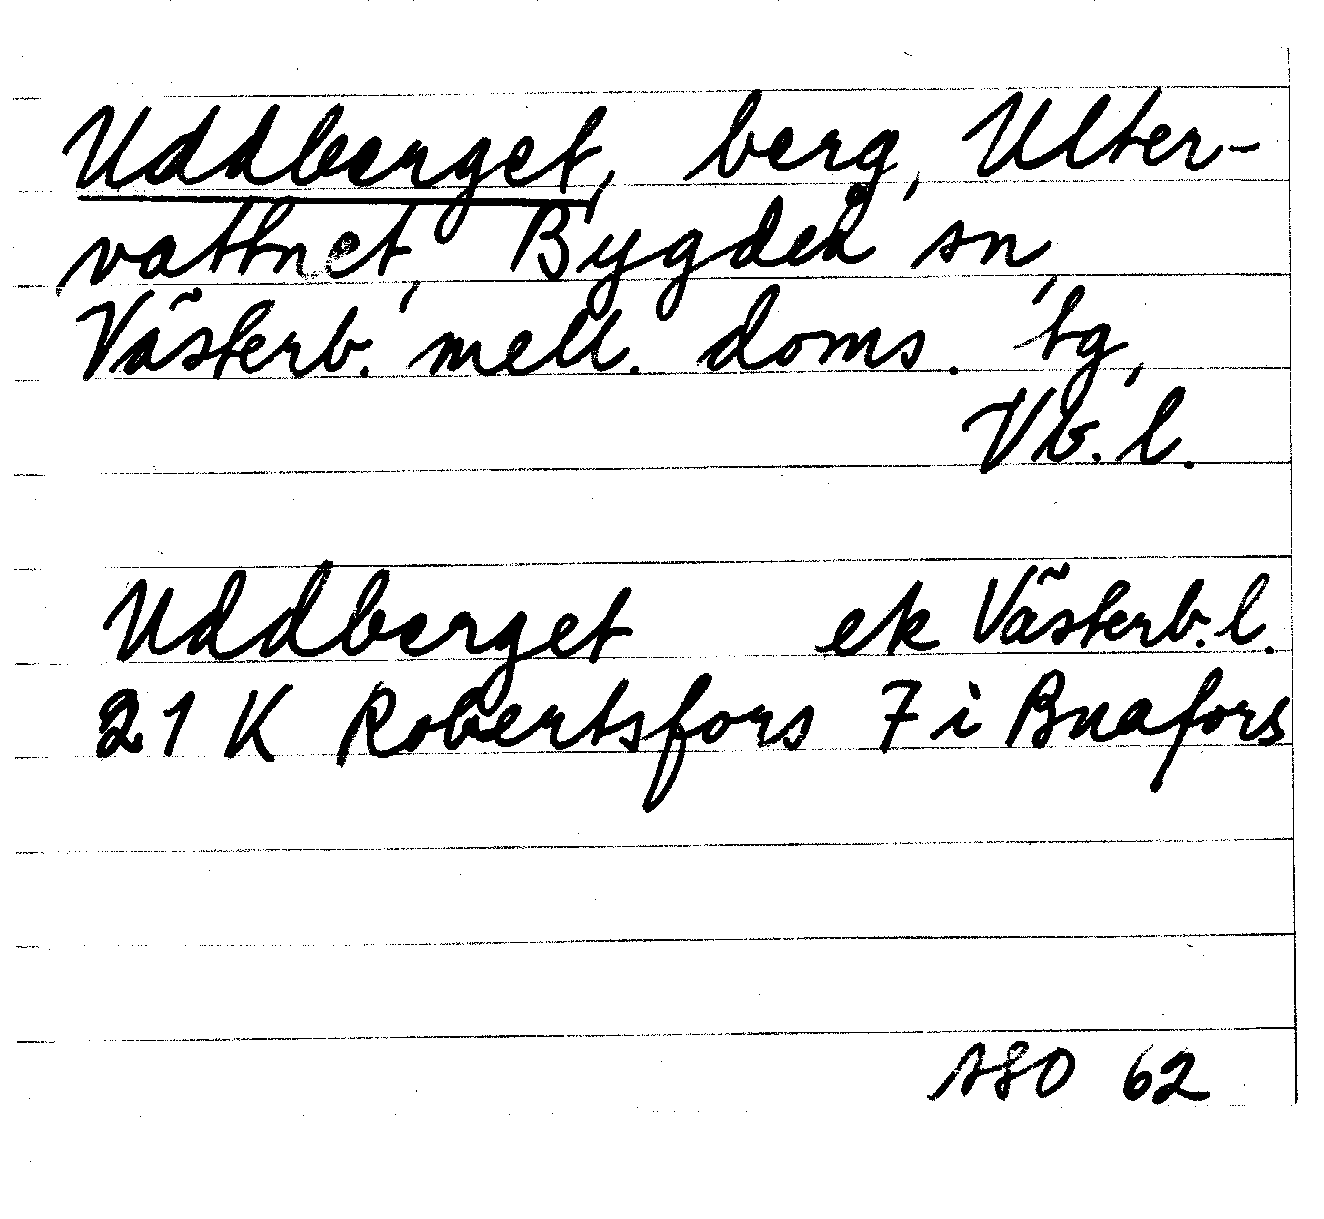 Uddberget, berg, Ulter-
vattnet, Bygdeå sn,
Västerb. mell. doms. tg,
Vb. l.
Uddberget ek Västerb. l.
21 K Robertsfors 7 i Buafors
ASO 62